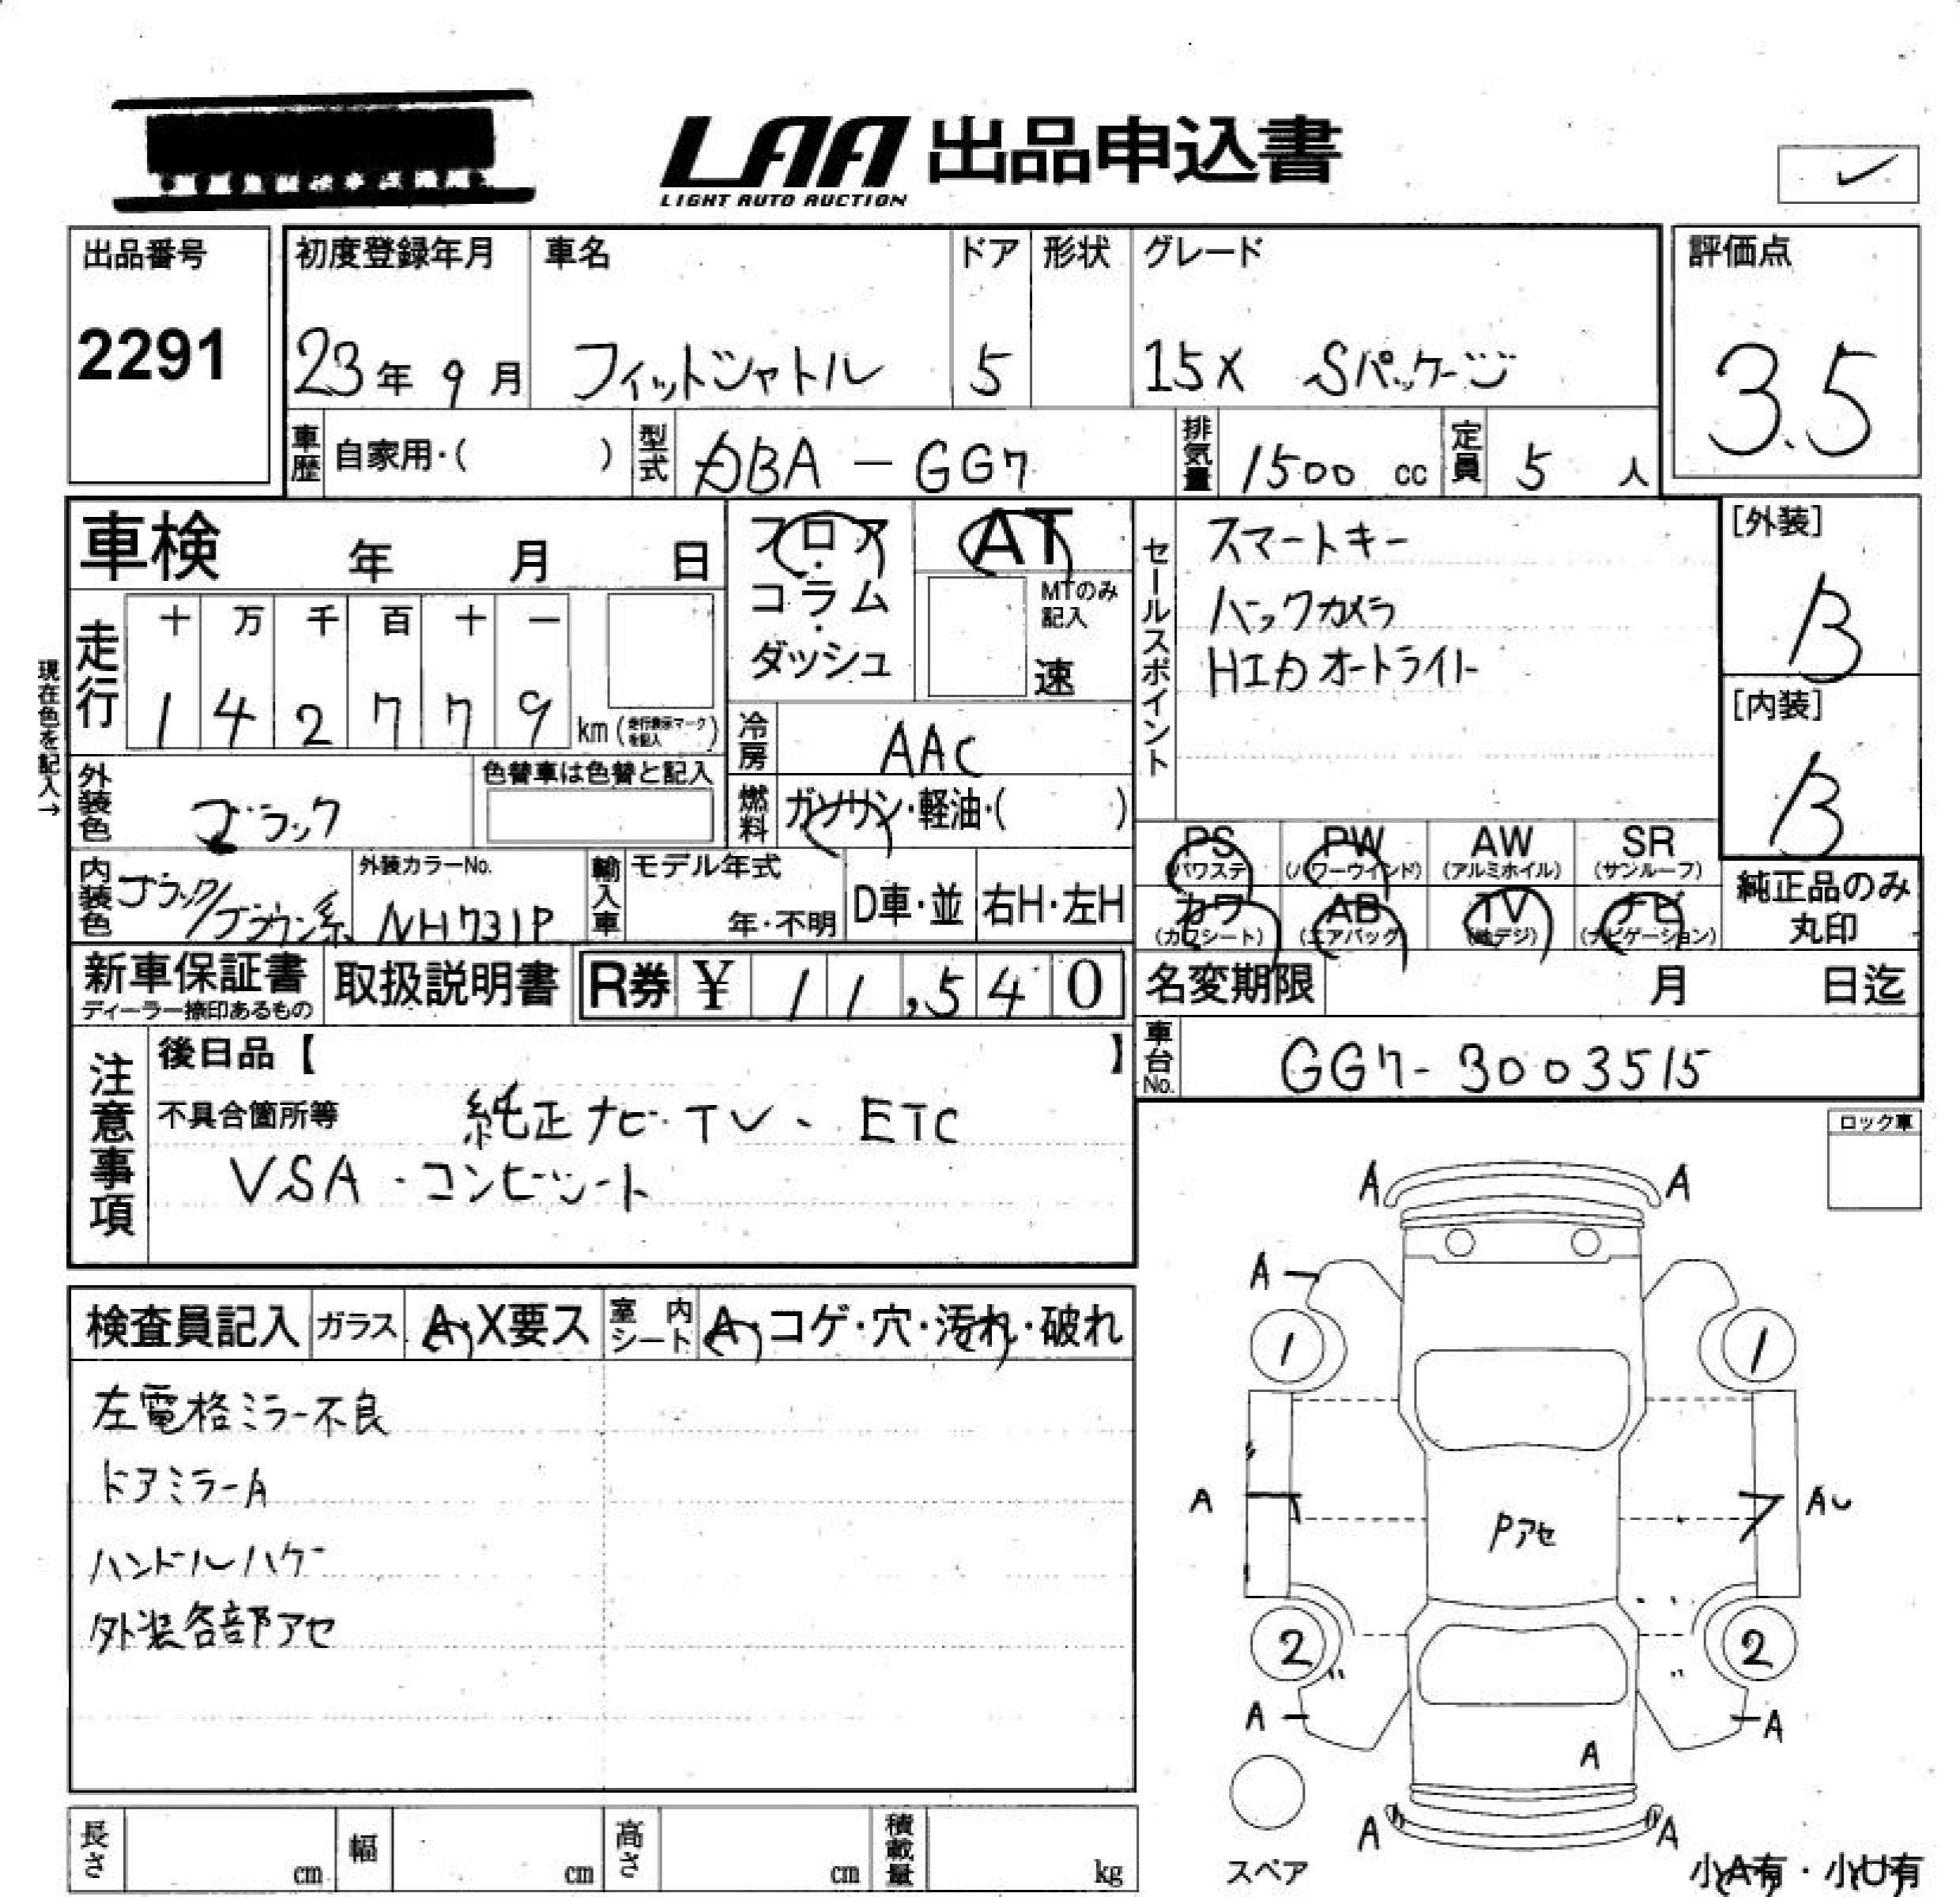 LAA 出品申込書
LIGHT AUTO AUCTION
出品番号 2291
初度登録年月 23年 9月
車名 フィットシャトル
ドア 5
形状
グレード 15X Sパッケージ
評価点 3.5
車歴 自家用・( )
型式 DBA - GG7
排気量 1500 cc
定員 5 人
車検 年 月 日
フロア・コラム・ダッシュ
AT
MTのみ記入
速
セールスポイント
スマートキー
バックカメラ
HID オートライト
[外装]
B
[内装]
B
現在色を記入→
走行 十 万 千 百 十 一
1 4 2 7 7 9 km (走行表示マークを記入)
冷房 AAC
外装色 ブラック
色替車は色替と記入
燃料 ガソリン・軽油・( )
内装色 ブラック/ブラウン系
外装カラーNo. NH731P
輸入車 モデル年式 年・不明
D車・並 右H・左H
PS (パワステ) PW (パワーウインド) AW (アルミホイル) SR (サンルーフ)
カワ (カワシート) AB (エアバッグ) TV (地デジ) ナビ (ナビゲーション)
純正品のみ丸印
新車保証書
ディーラー捺印あるもの
取扱説明書
R券 ¥ 11,540
名変期限 月 日迄
車台No. GG7-3003515
注意事項
後日品【 】
不具合箇所等 純正ナビ・TV、ETC
VSA・コンビシート
ロック車
検査員記入 ガラス A・X要ス 室内シート A・コゲ・穴・汚れ・破れ
左電格ミラー不良
ドアミラーA
ハンドルハゲ
外装各部アセ
A A
A
1 1
A AU
Pアセ
2 2
A A
A
A A
スペア
小A有・小U有
長さ cm 幅 cm 高さ cm 積載量 kg